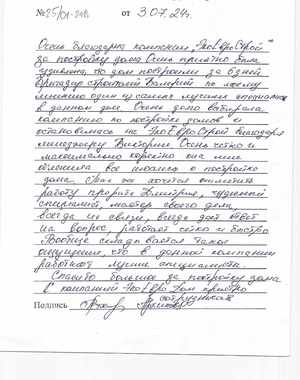 №25/01-248 от 3.07.24г.
Очень благодарна компании „ГеоЕвроСтрой"
за постройку дома. Очень приятно была
удивлена, что дом построили за
бригадир строителей Валерий по моему
мнению один из самых лучших
в данном деле. Очень долго выбирала
компанию по постройке домов и
остановилась на ГеоЕвроСтрой благодаря
менеджеру Виктории. Очень четко и
максимально корректно она мне
объяснила все нюансы о постройке
дома. Так же хочется отметить
работу прораба Дмитрия, чудесный
специалист, мастер своего дела,
всегда на связи, всегда даст ответ
на вопрос, работает четко и быстро
Вообще складывается такое
ощущение, что в данной компании
работают лучшие специалисты.
Спасибо большое за постройку дома
Подпись